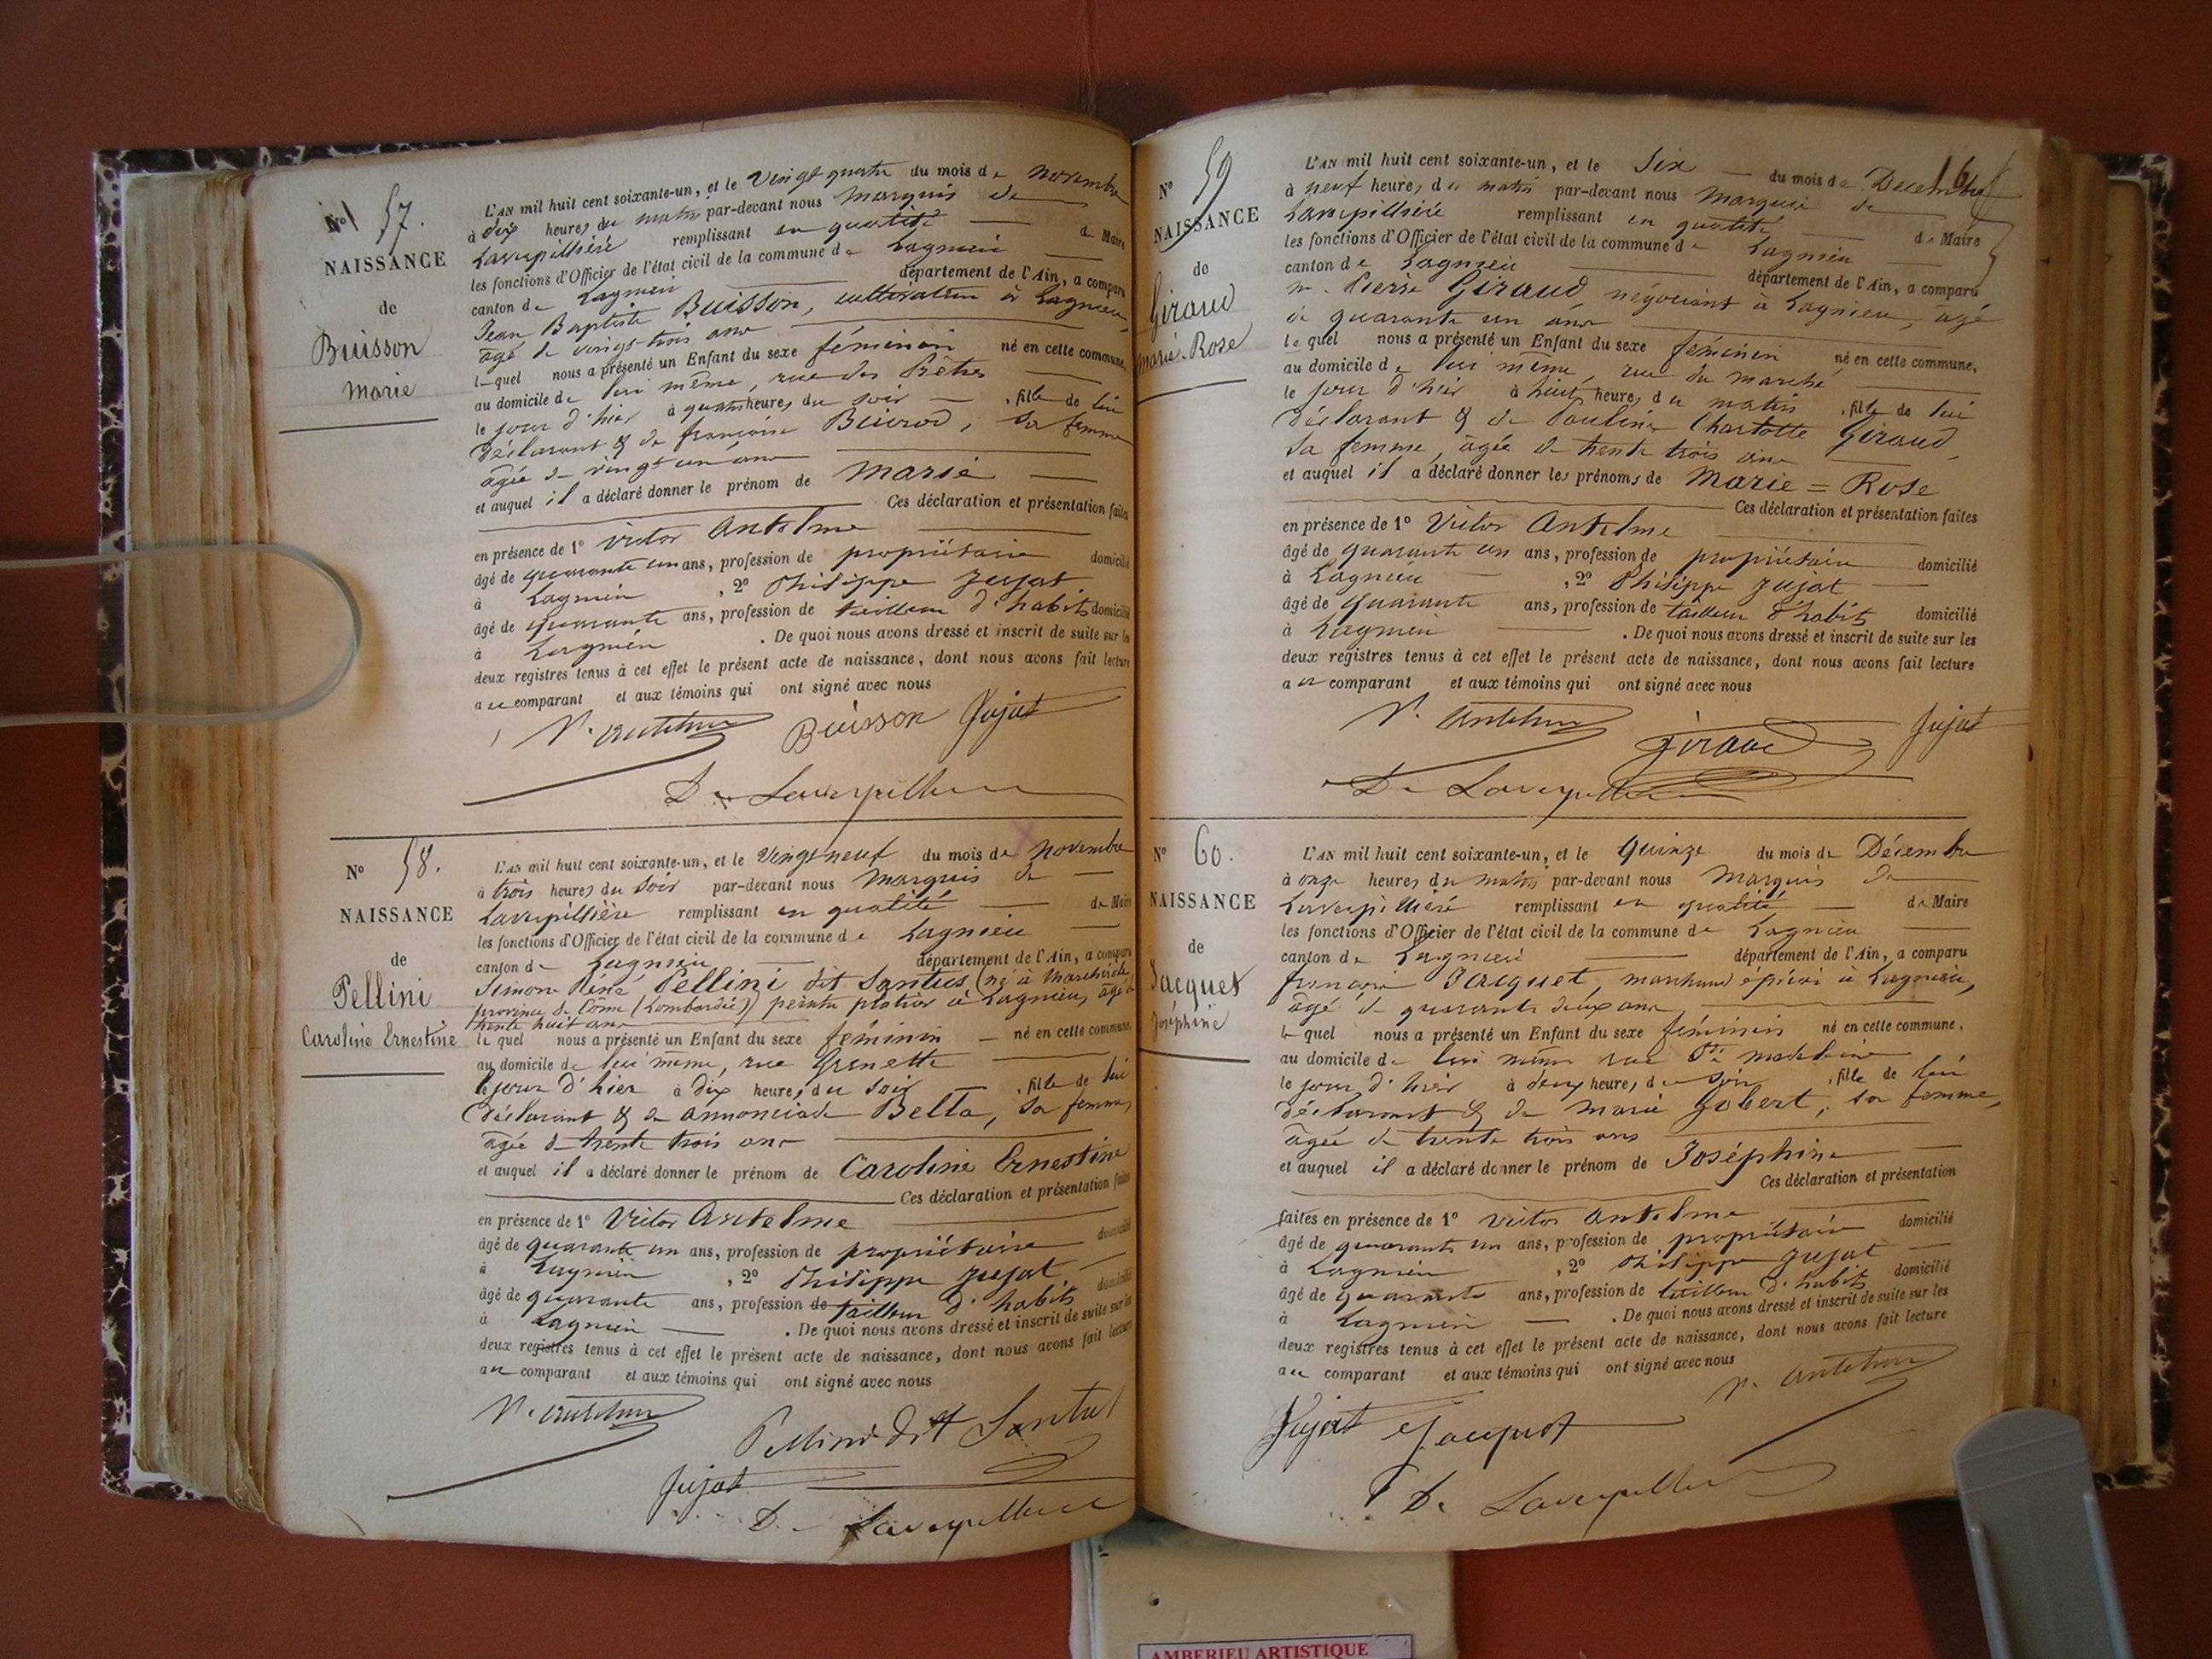 N° 57.
NAISSANCE
de
Buisson
Marie
L'AN mil huit cent soixante-un, et le vingt quatre du mois de novembre
à dix heures du matin par-devant nous Marquis de
Laverpillière remplissant en qualité de Maire
les fonctions d'Officier de l'état civil de la commune de Lagnieu
canton de Lagnieu département de l'Ain, a comparu
Jean Baptiste Buisson, cultivateur à Lagnieu,
âgé de vingt-trois ans
lequel nous a présenté un Enfant du sexe féminin né en cette commune,
au domicile de lui même, rue des Prêtres
le jour d'hier à quatre heures du soir, fille de lui
déclarant & de françoise sa femme
âgée de vingt un ans
et auquel il a déclaré donner le prénom de Marie
Ces déclaration et présentation faites
en présence de 1° Victor Antelme
âgé de quarante un ans, profession de propriétaire domicilié
à Lagnieu, 2° Philippe Jujat
âgé de quarante ans, profession de tailleur d'habits domicilié
à Lagnieu. De quoi nous avons dressé et inscrit de suite sur les
deux registres tenus à cet effet le présent acte de naissance, dont nous avons fait lecture
au comparant et aux témoins qui ont signé avec nous
V. Antelme Buisson Jujat
De Laverpilliere
N° 58.
NAISSANCE
de
Pellini
Caroline Ernestine
L'AN mil huit cent soixante-un, et le vingt neuf du mois de novembre
à trois heures du soir par-devant nous Marquis de
Laverpillière remplissant en qualité de Maire
les fonctions d'Officier de l'état civil de la commune de Lagnieu
canton de Lagnieu département de l'Ain, a comparu
Simon René Pellini dit Santus (né à
province de Côme (Lombardie)) peintre plâtrier à Lagnieu, âgé de
trente huit ans
lequel nous a présenté un Enfant du sexe féminin né en cette commune,
au domicile de lui même, rue Grenette
le jour d'hier à dix heures du soir, fille de lui
déclarant & de annonciade Belta, sa femme,
âgée de trente trois ans
et auquel il a déclaré donner le prénom de Caroline Ernestine
Ces déclaration et présentation faites
en présence de 1° Victor Antelme
âgé de quarante un ans, profession de propriétaire domicilié
à Lagnieu, 2° Philippe Jujat
âgé de quarante ans, profession de tailleur d'habits domicilié
à Lagnieu. De quoi nous avons dressé et inscrit de suite sur les
deux registres tenus à cet effet le présent acte de naissance, dont nous avons fait lecture
au comparant et aux témoins qui ont signé avec nous
V. Antelme
Pellini dit Santus
Jujat
De Laverpilliere
16
N° 59
NAISSANCE
de
Giraud
Marie-Rose
L'AN mil huit cent soixante-un, et le six du mois de Decembre
à neuf heures du matin par-devant nous Marquis de
Laverpillière remplissant en qualité de Maire
les fonctions d'Officier de l'état civil de la commune de Lagnieu
canton de Lagnieu département de l'Ain, a comparu
m. Pierre Giraud, négociant à Lagnieu, âgé
de quarante un ans
lequel nous a présenté un Enfant du sexe féminin né en cette commune,
au domicile de lui même, rue du marché
le jour d'hier à huit heures du matin, fille de lui
déclarant & de Pauline Charlotte Giraud,
sa femme, âgée de trente trois ans
et auquel il a déclaré donner les prénoms de Marie = Rose
Ces déclaration et présentation faites
en présence de 1° Victor Antelme
âgé de quarante un ans, profession de propriétaire domicilié
à Lagnieu, 2° Philippe Jujat
âgé de quarante ans, profession de tailleur d'habits domicilié
à Lagnieu. De quoi nous avons dressé et inscrit de suite sur les
deux registres tenus à cet effet le présent acte de naissance, dont nous avons fait lecture
au comparant et aux témoins qui ont signé avec nous
V. Antelme Giraud Jujat
De Laverpilliere
N° 60.
NAISSANCE
de
Jacquet
Joséphine
L'AN mil huit cent soixante-un, et le quinze du mois de Décembre
à onze heures du matin par-devant nous Marquis de
Laverpillière remplissant en qualité de Maire
les fonctions d'Officier de l'état civil de la commune de Lagnieu
canton de Lagnieu département de l'Ain, a comparu
françois Jacquet, marchand épicier à Lagnieu,
âgé de quarante deux ans
lequel nous a présenté un Enfant du sexe féminin né en cette commune,
au domicile de lui même rue Ste madeleine
le jour d'hier à deux heures du soir, fille de lui
déclarant & de marie Gobert, sa femme,
âgée de trente trois ans
et auquel il a déclaré donner le prénom de Joséphine
Ces déclaration et présentation
faites en présence de 1° Victor Antelme
âgé de quarante un ans, profession de propriétaire domicilié
à Lagnieu, 2° Philippe Jujat
âgé de quarante ans, profession de tailleur d'habits domicilié
à Lagnieu. De quoi nous avons dressé et inscrit de suite sur les
deux registres tenus à cet effet le présent acte de naissance, dont nous avons fait lecture
au comparant et aux témoins qui ont signé avec nous
V. Antelme
Jujat Jacquet
De Laverpilliere
AMBERIEU ARTISTIQUE